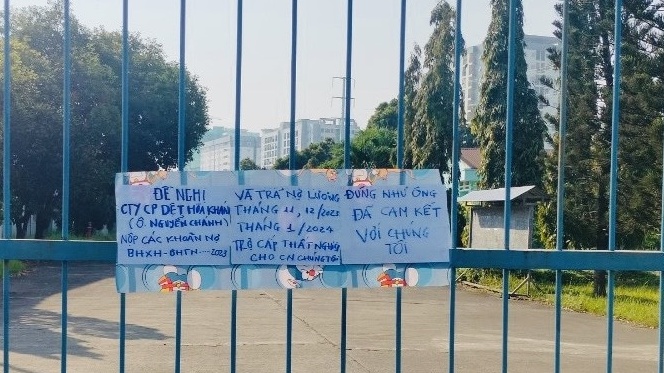 ĐỀ NGHỊ
CTY CP DỆT HÒA KHÁNH
(Ô. NGUYỄN CHÁNH)
NỘP CÁC KHOẢN NỢ
BHXH-BHTN....2023
VÀ TRẢ NỢ LƯƠNG
THÁNG 11, 12/2023
THÁNG 1/2024
TRỢ CẤP THẤT NGHIỆP
CHO CN CHÚNG TÔI
ĐÚNG NHƯ ÔNG
ĐÃ CAM KẾT
VỚI CHÚNG
TÔI